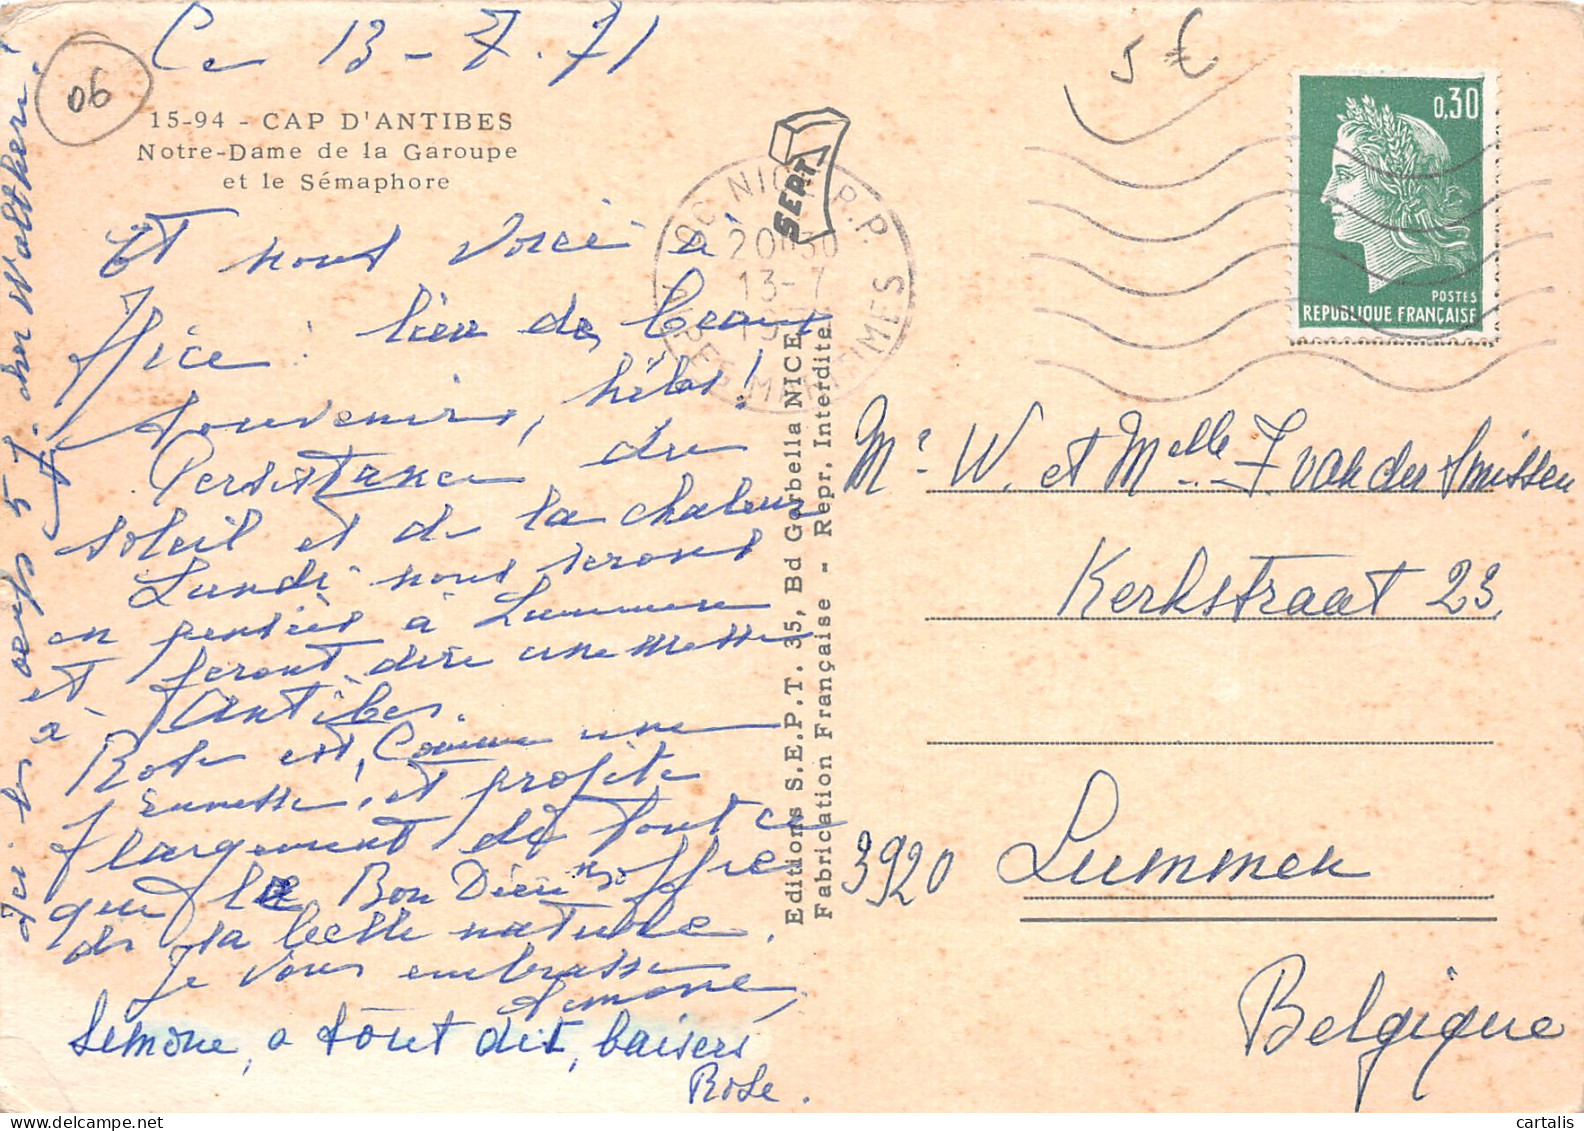 Ce 13-7.71
06
5 €
15-94 - CAP D'ANTIBES
Notre-Dame de la Garoupe
et le Sémaphore
Et nous voici à
Nice : lieu de beaux
souvenirs, hélas!
Persistance du
soleil et de la chaleur
Lundi nous serons
en pensées à Lummen
et feront dire une messe
à Antibes.
Rose est, comme une
jeunesse, et profite
largement de tout ce
que le Bon Dieu ns offre
de sa belle nature.
Je vous embrasse
Simone,
Simone, a tout dit, baisers
Rose.
Ici les œufs 5 f.
SEPT
NICE R.P.
20H30
13-7
ALPES MARITIMES
Editions S.E.P.T. 35, Bd Gorbella NICE
Fabrication Française - Repr. Interdite
0,30
POSTES
REPUBLIQUE FRANÇAISE
Mr W. et Melle J. van der Smissen
Kerkstraat 23
3920 Lummen
Belgique
cartalis